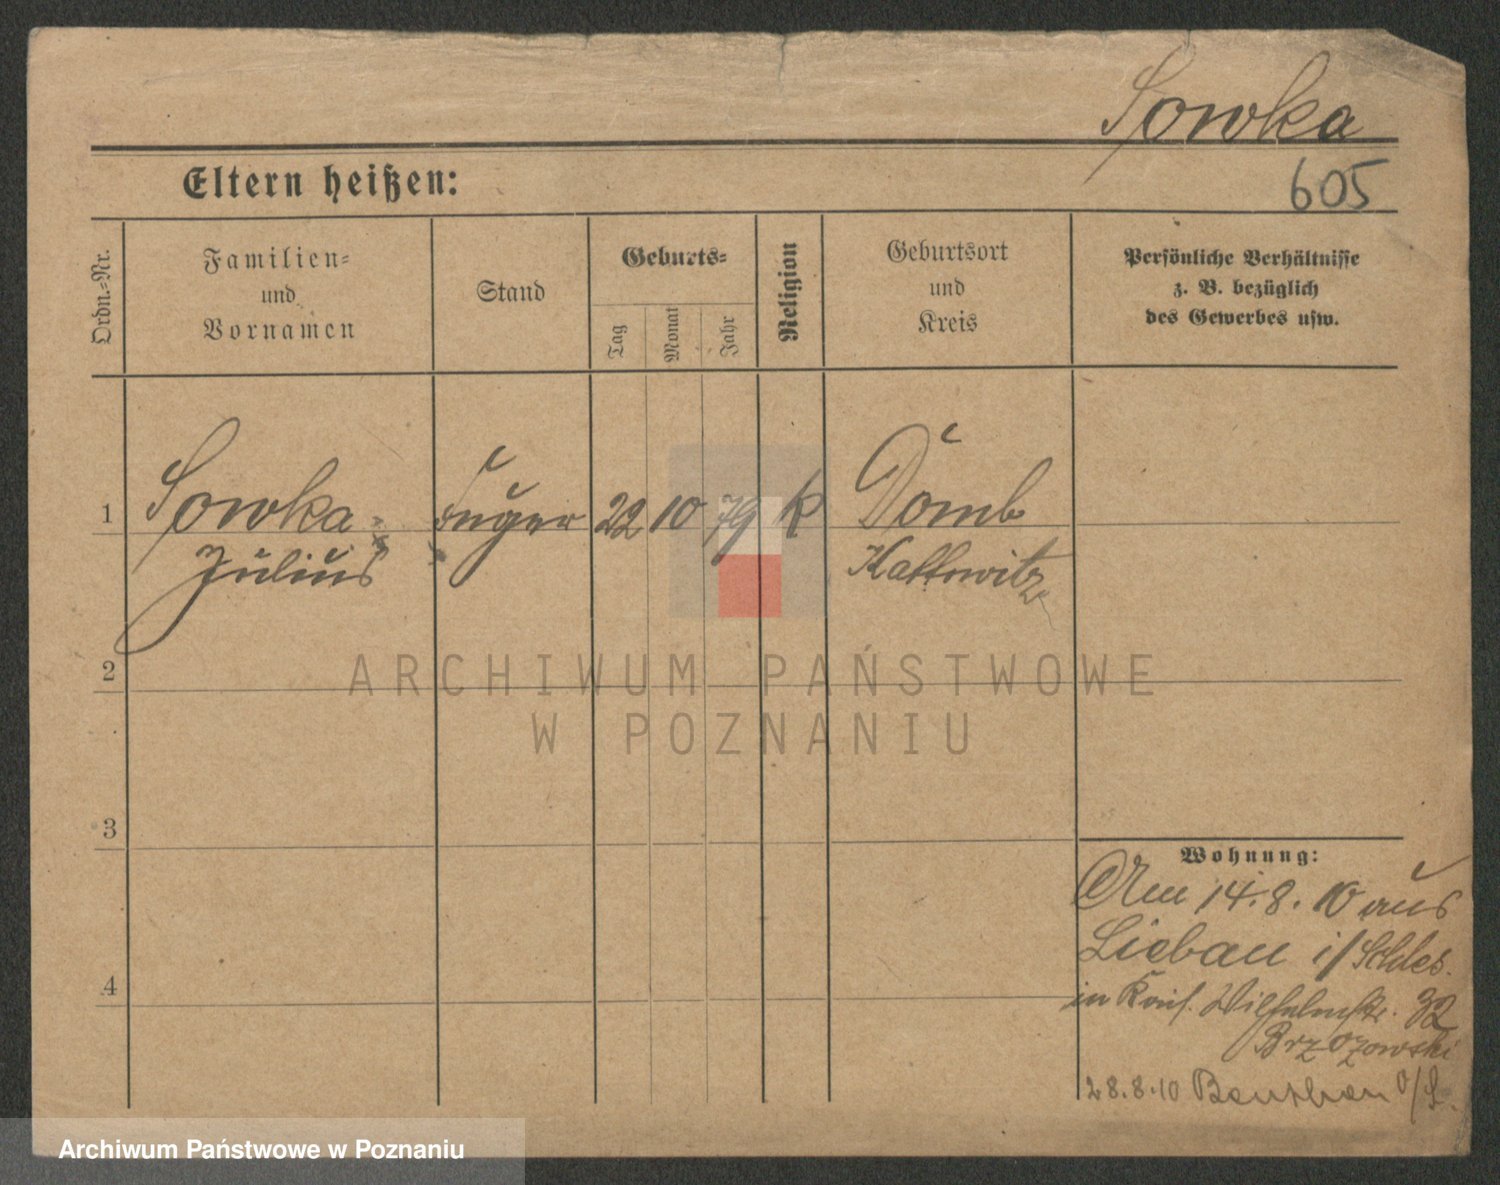 Sowka
Eltern heißen:
605
Ordn.-Nr.
Familien-
und
Vornamen
Stand
Geburts-
Tag
Monat
Jahr
Religion
Geburtsort
und
Kreis
Persönliche Verhältnisse
z. B. bezüglich
des Gewerbes usw.
1
Sowka
22
10
79
k
Domb
Julius
Kattowitz
2
3
4
Wohnung:
Am 14.8.10 aus
Liebau i/Schles.
in Wilhelmstr. 32
Brzozowski
28.8.10 Beuthen O/S.
ARCHIWUM PAŃSTWOWE
W POZNANIU
Archiwum Państwowe w Poznaniu